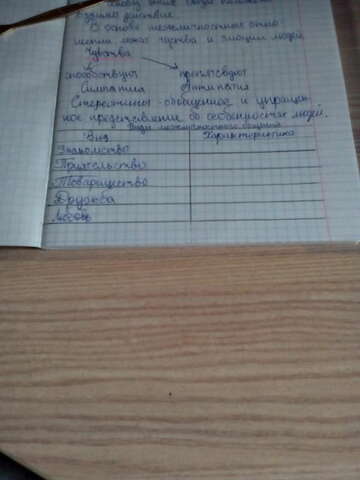 взаимо действие.
В основе межличностных отно
лежат чувства и эмоции людей
Чувства
способствуют препятсвуют
Симпатия Антипатия
Стереотипы - обобщенное и упрощен-
ное представление об особенностях людей.
Виды межличностного общения
Вид Характеристика
Знакомство
Приятельство
Товарищество
Дружба
Любовь